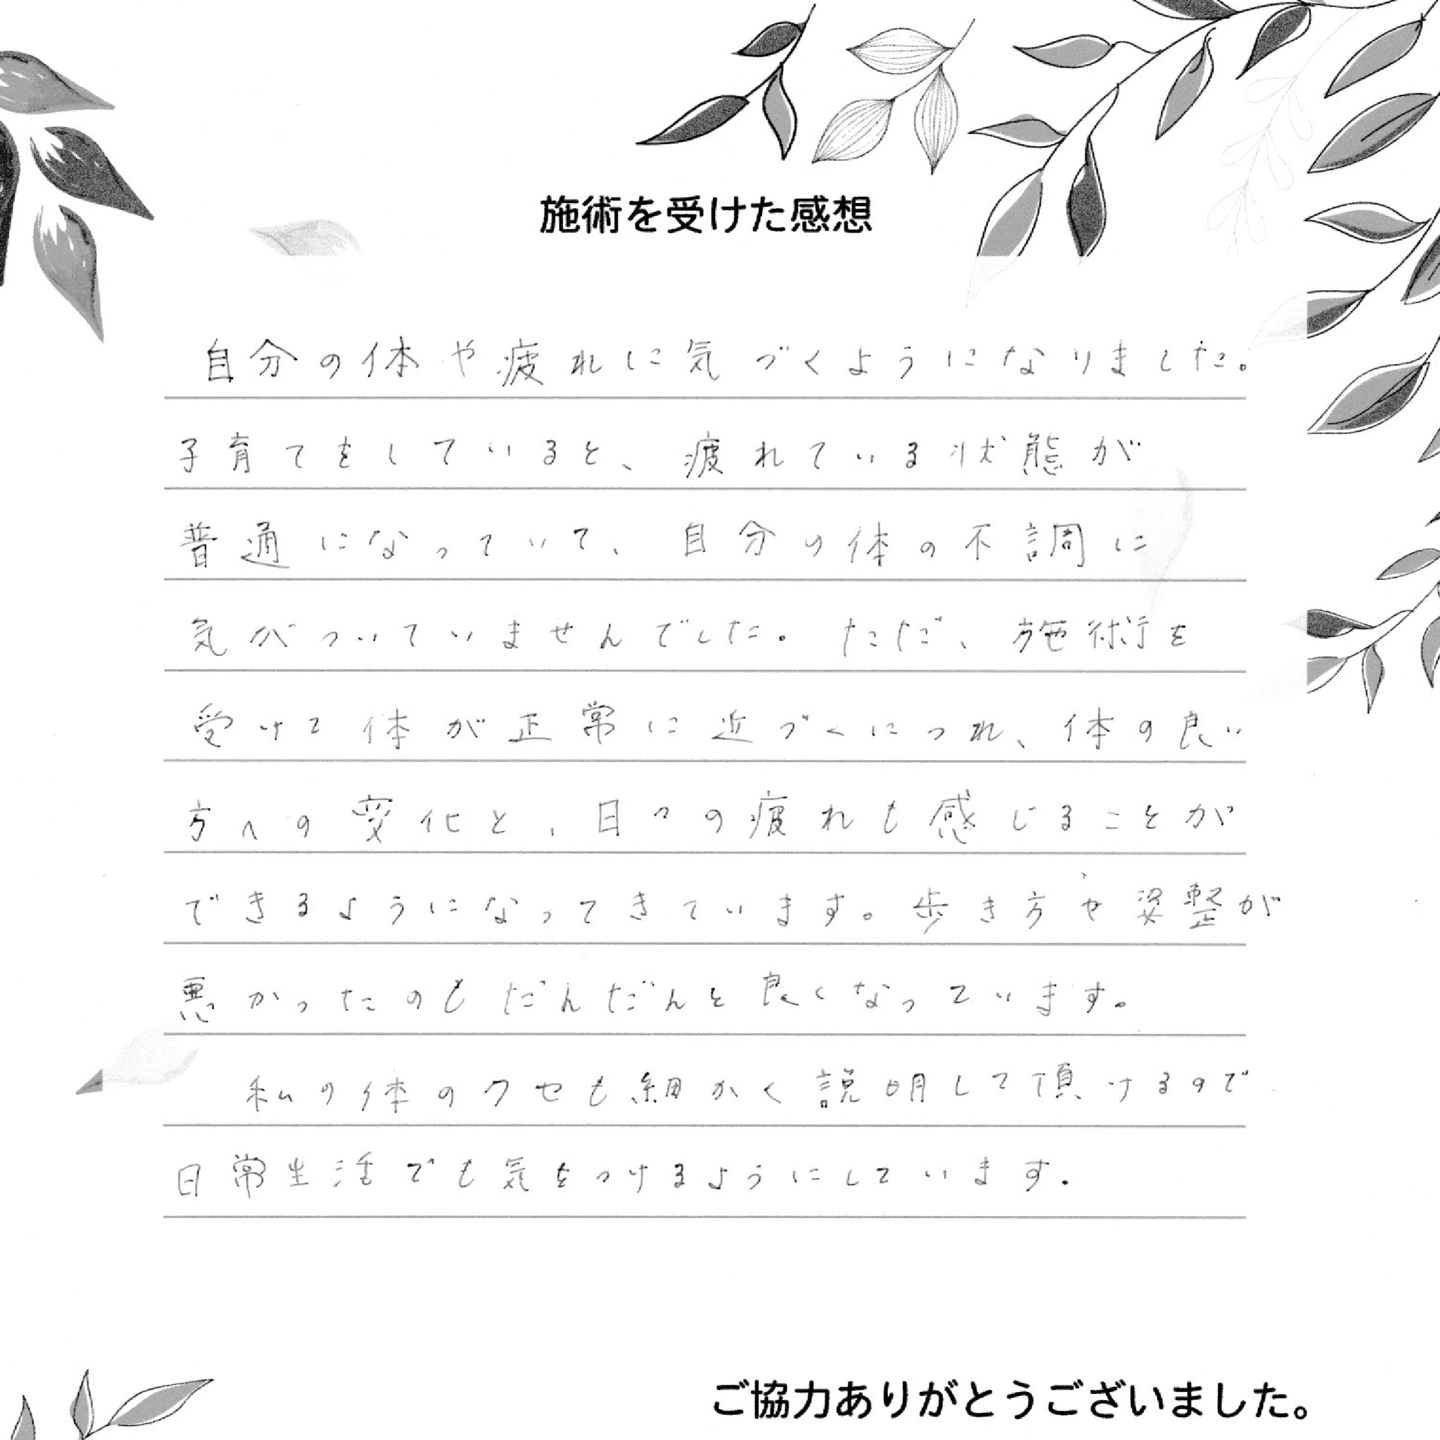 施術を受けた感想
自分の体や疲れに気づくようになりました。
子育てをしていると、疲れている状態が
普通になっていて、自分の体の不調に
気がついていませんでした。ただ、施術を
受けて体が正常に近づくにつれ、体の良い
方への変化と、日々の疲れも感じることが
できるようになってきています。歩き方や姿整が
悪かったのもだんだんと良くなっています。
私の体のクセも細かく説明して頂けるので
日常生活でも気をつけるようにしています.
ご協力ありがとうございました。